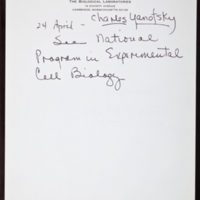 THE BIOLOGICAL LABORATORIES
16 DIVINITY AVENUE
CAMBRIDGE, MASSACHUSETTS 02138
24 April - Charles Yanofsky
See National
Program in Experimental
Cell Biology